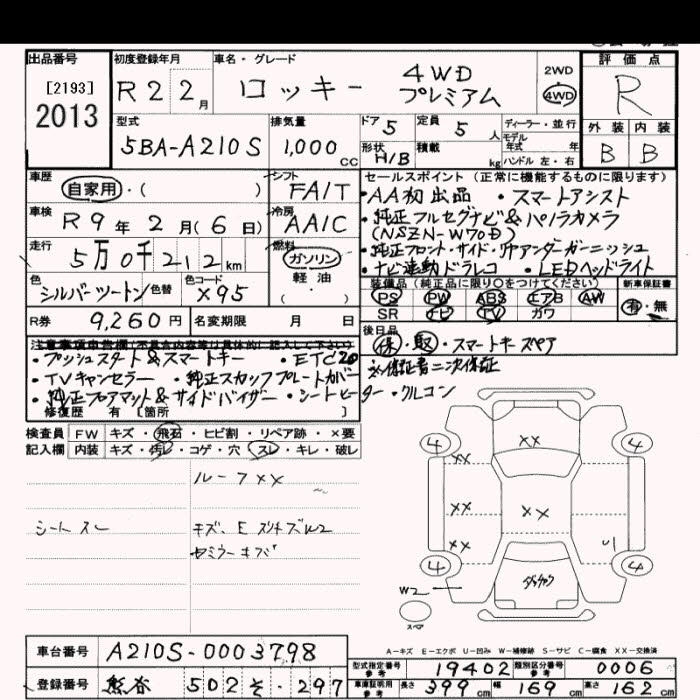 出品番号
[2193]
2013
初度登録年月
R2 2月
車名・グレード
ロッキー
4WD
プレミアム
2WD
4WD
評価点
R
外装 内装
B B
型式
5BA-A210S
排気量
1,000 CC
ドア 5
定員 5 人
ディーラー・並行
モデル
年式 年
形状 H/B
積載 kg
ハンドル 左・右
車歴
自家用・( )
シフト
FAIT
車検
R9年2月(6日)
冷房
AAIC
走行
5万0千212km
燃料
ガソリン
軽・油
( ・ )
色
シルバーツートン
色替
色コード
X95
R券 9,260円
名変期限 月 日
セールスポイント (正常に機能するものに限ります)
・AA初出品 ・スマートアシスト
・純正フルセグナビ&パノラマカメラ
(NSZN-W70D)
・純正フロント・サイド・リヤアンダーガーニッシュ
・ナビ連動ドラレコ ・LEDヘッドライト
装備品(純正品に限り○をつけてください)
新車保証書
PS PW ABS エアB AW
SR ナビ TV カワ
有・無
後日品
保・取・スマートキースペア
注意事項申告欄(不具合内容等は具体的に記入して下さい)
・プッシュスタート&スマートキー ・ETC2.0
・TVキャンセラー ・純正スカッフプレートカバー
・純正フロアマット&サイドバイザー・シートヒーター・クルコン
※保証書二次保証
修復歴 有 [箇所 ]
検査員
記入欄
FW キズ・飛石・ヒビ割・リペア跡・×要
内装 キズ・汚レ・コゲ・穴・スレ・キレ・破レ
ルーフXX
シートスレ
キズ、E
キズ
XX
4 4
XX
XX XX
XX
4 4
W2
スペア
A-キズ E-エクボ U-凹み W-補修跡 S-サビ C-腐食 XX-交換済
車台番号 A210S-0003798
登録番号 熊谷 502 そ・297
型式指定番号
参考
19402
類別区分番号
参考
0006
車庫証明用
参考
長さ 399 cm 幅 169 cm 高さ 162 cm